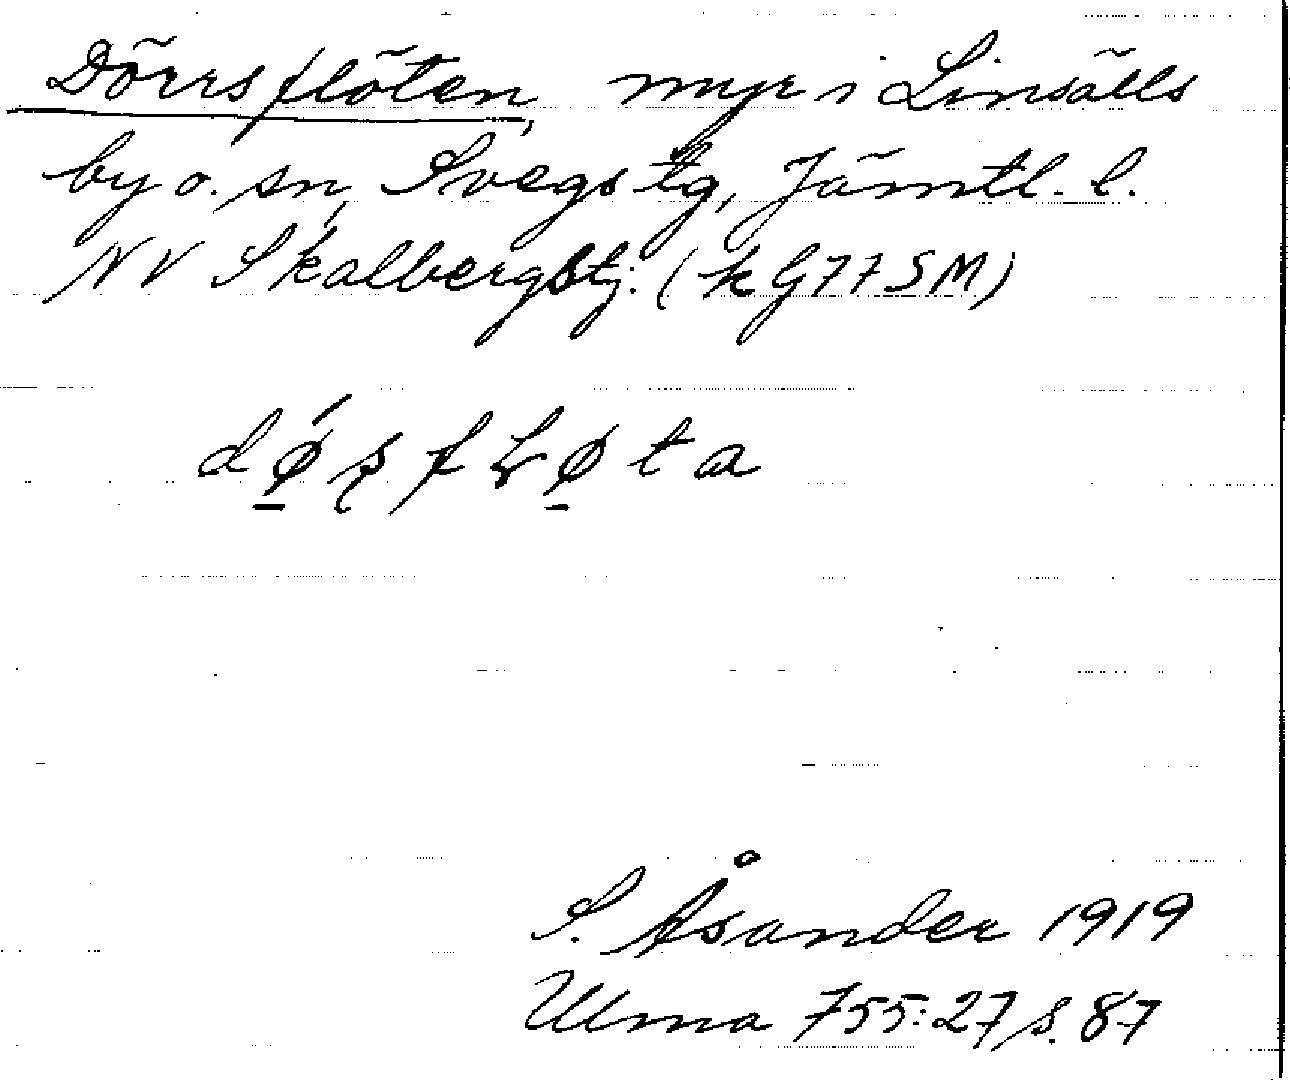 Dörrsflöten, myr i Linsälls
by o. sn, Svegs tg, Jämtl. l.
NV Skalbergstj. (k G77SM)
dǿ̱ʂfLø̱ta
S. Åsander 1919
Ulma 755:27 s. 87